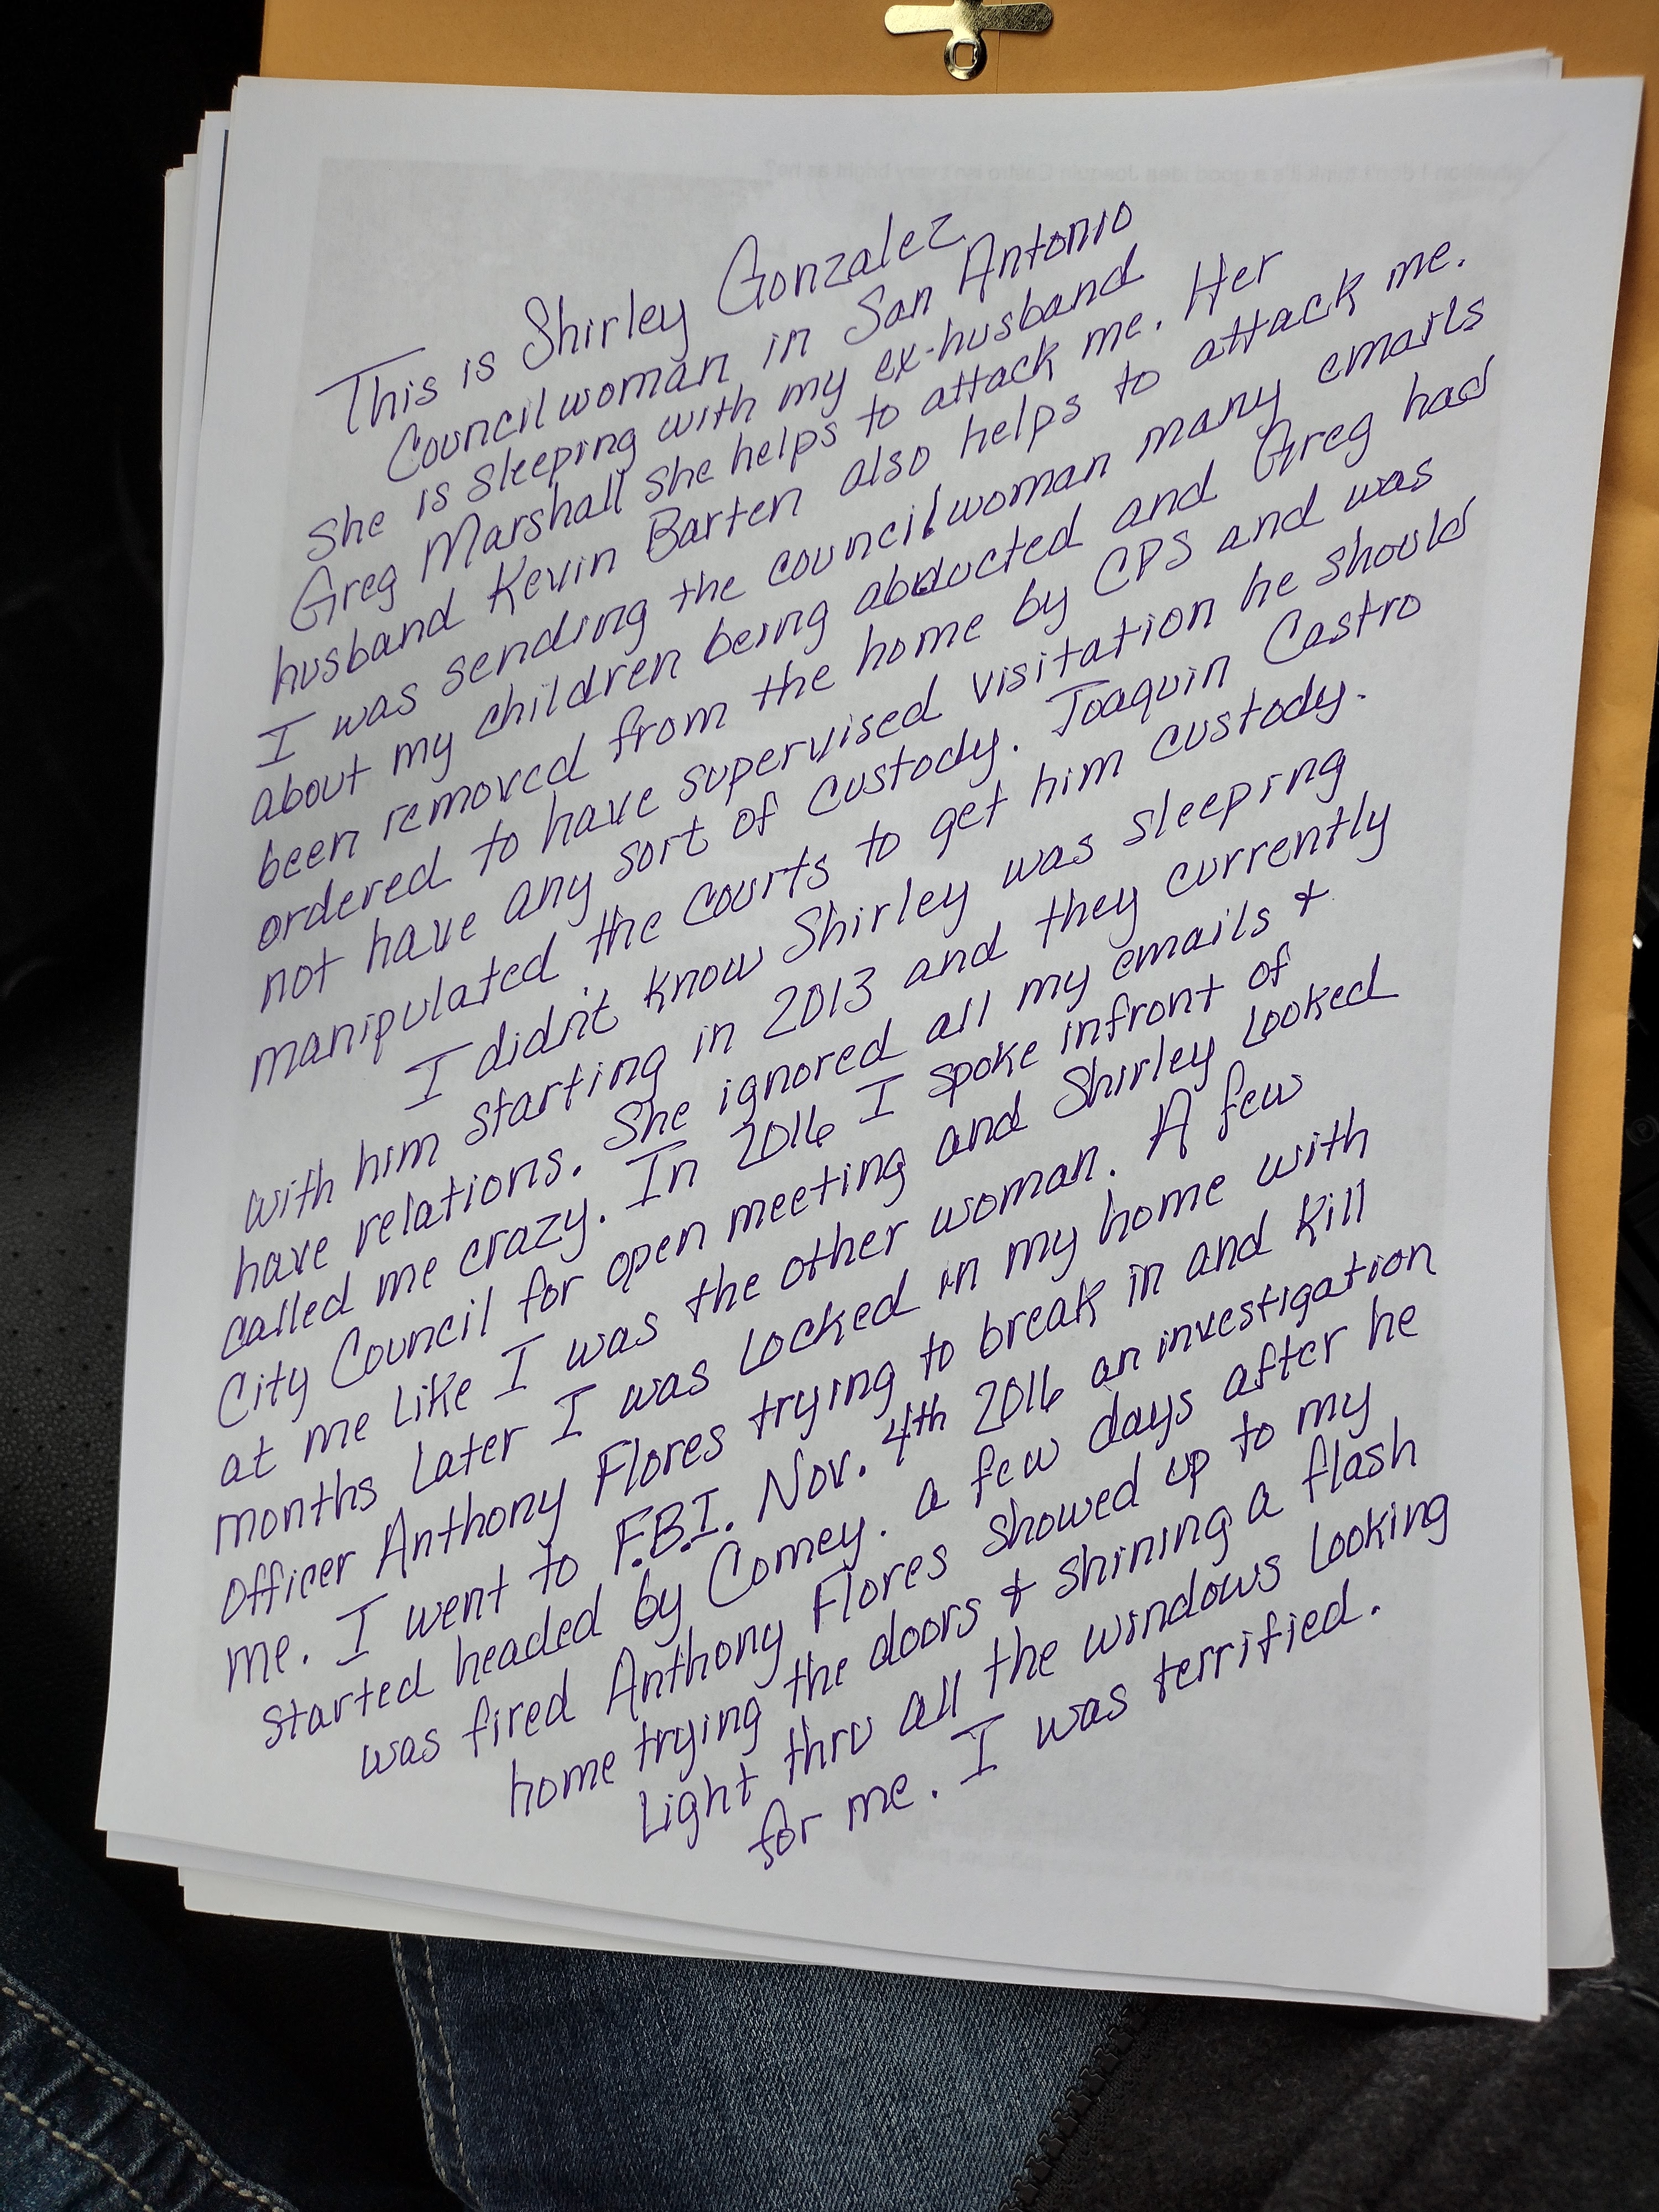 This is Shirley Gonzalez
Councilwoman in San Antonio
She is sleeping with my ex-husband
Greg Marshall she helps to attack me. Her
husband Kevin Barten also helps to attack me.
I was sending the councilwoman many emails
about my children being abducted and Greg had
been removed from the home by CPS and was
ordered to have supervised visitation he should
not have any sort of custody. Joaquin Castro
manipulated the courts to get him custody.
I didn't know Shirley was sleeping
with him starting in 2013 and they currently
have relations. She ignored all my emails +
called me crazy. In 2016 I spoke infront of
City Council for open meeting and Shirley looked
at me like I was the other woman. A few
months later I was locked in my home with
officer Anthony Flores trying to break in and kill
me. I went to F.B.I. Nov. 4th 2016 an investigation
started headed by Comey. a few days after he
was fired Anthony Flores showed up to my
home trying the doors + shining a flash
Light thru all the windows looking
for me. I was terrified.